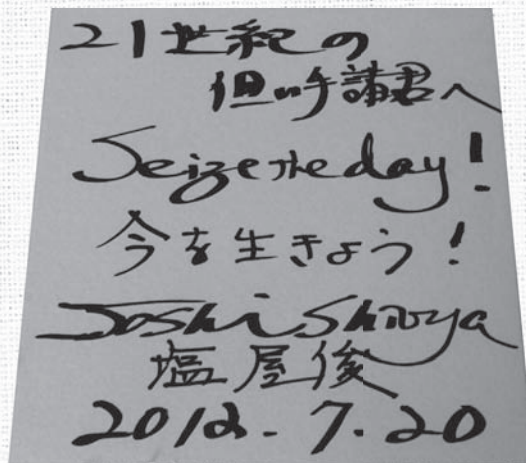 21世紀の
担い手諸君へ
Seize the day!
今を生きよう!
Toshi Shioya
塩屋俊
2012.7.20